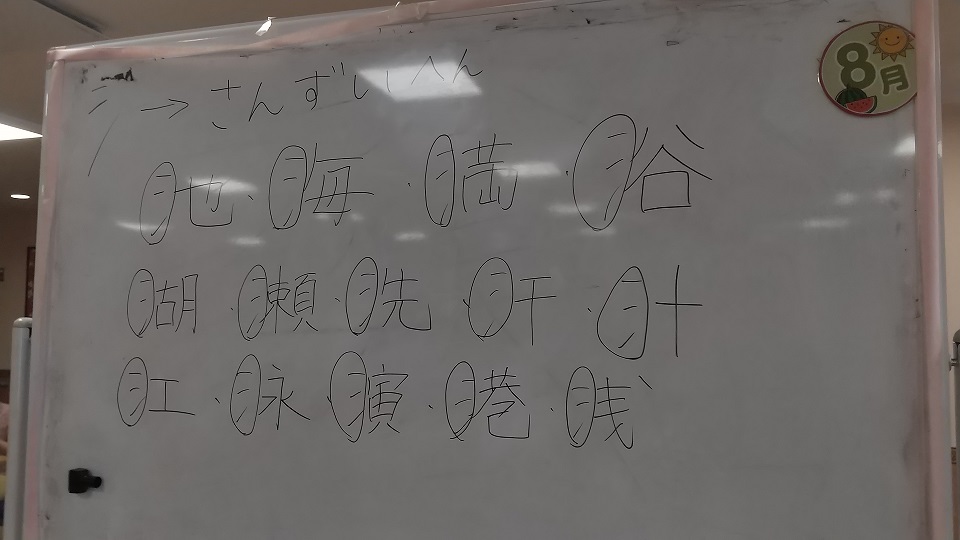 氵→さんずいへん
8月
池・海・満・浴
湖・瀬・洗・汗・汁
江・泳・演・港・浅